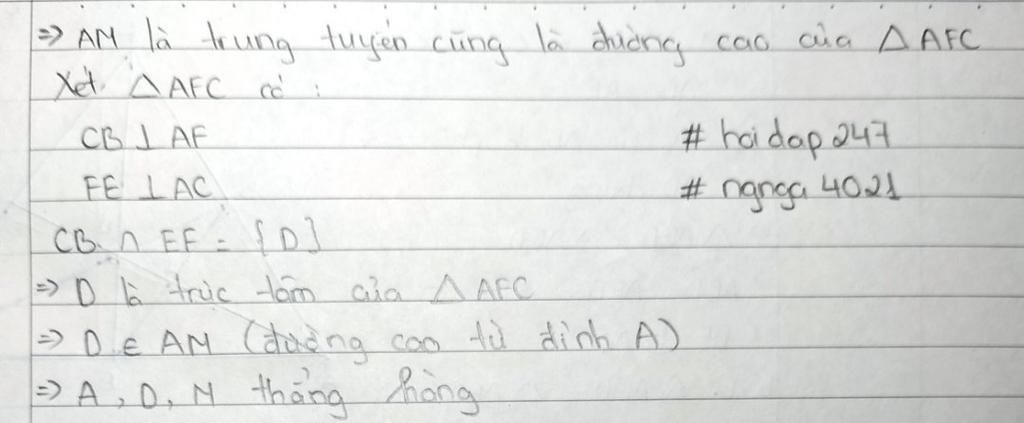 => AM là trung tuyến cũng là đường cao của △ AFC
Xét △ AFC có :
CB ⊥ AF
# hoidap247
FE ⊥ AC
# ngnga4021
CB ∩ EF = {D}
=> D là trực tâm của △ AFC
=> D ∈ AM (đường cao từ đỉnh A)
=> A, D, M thẳng hàng